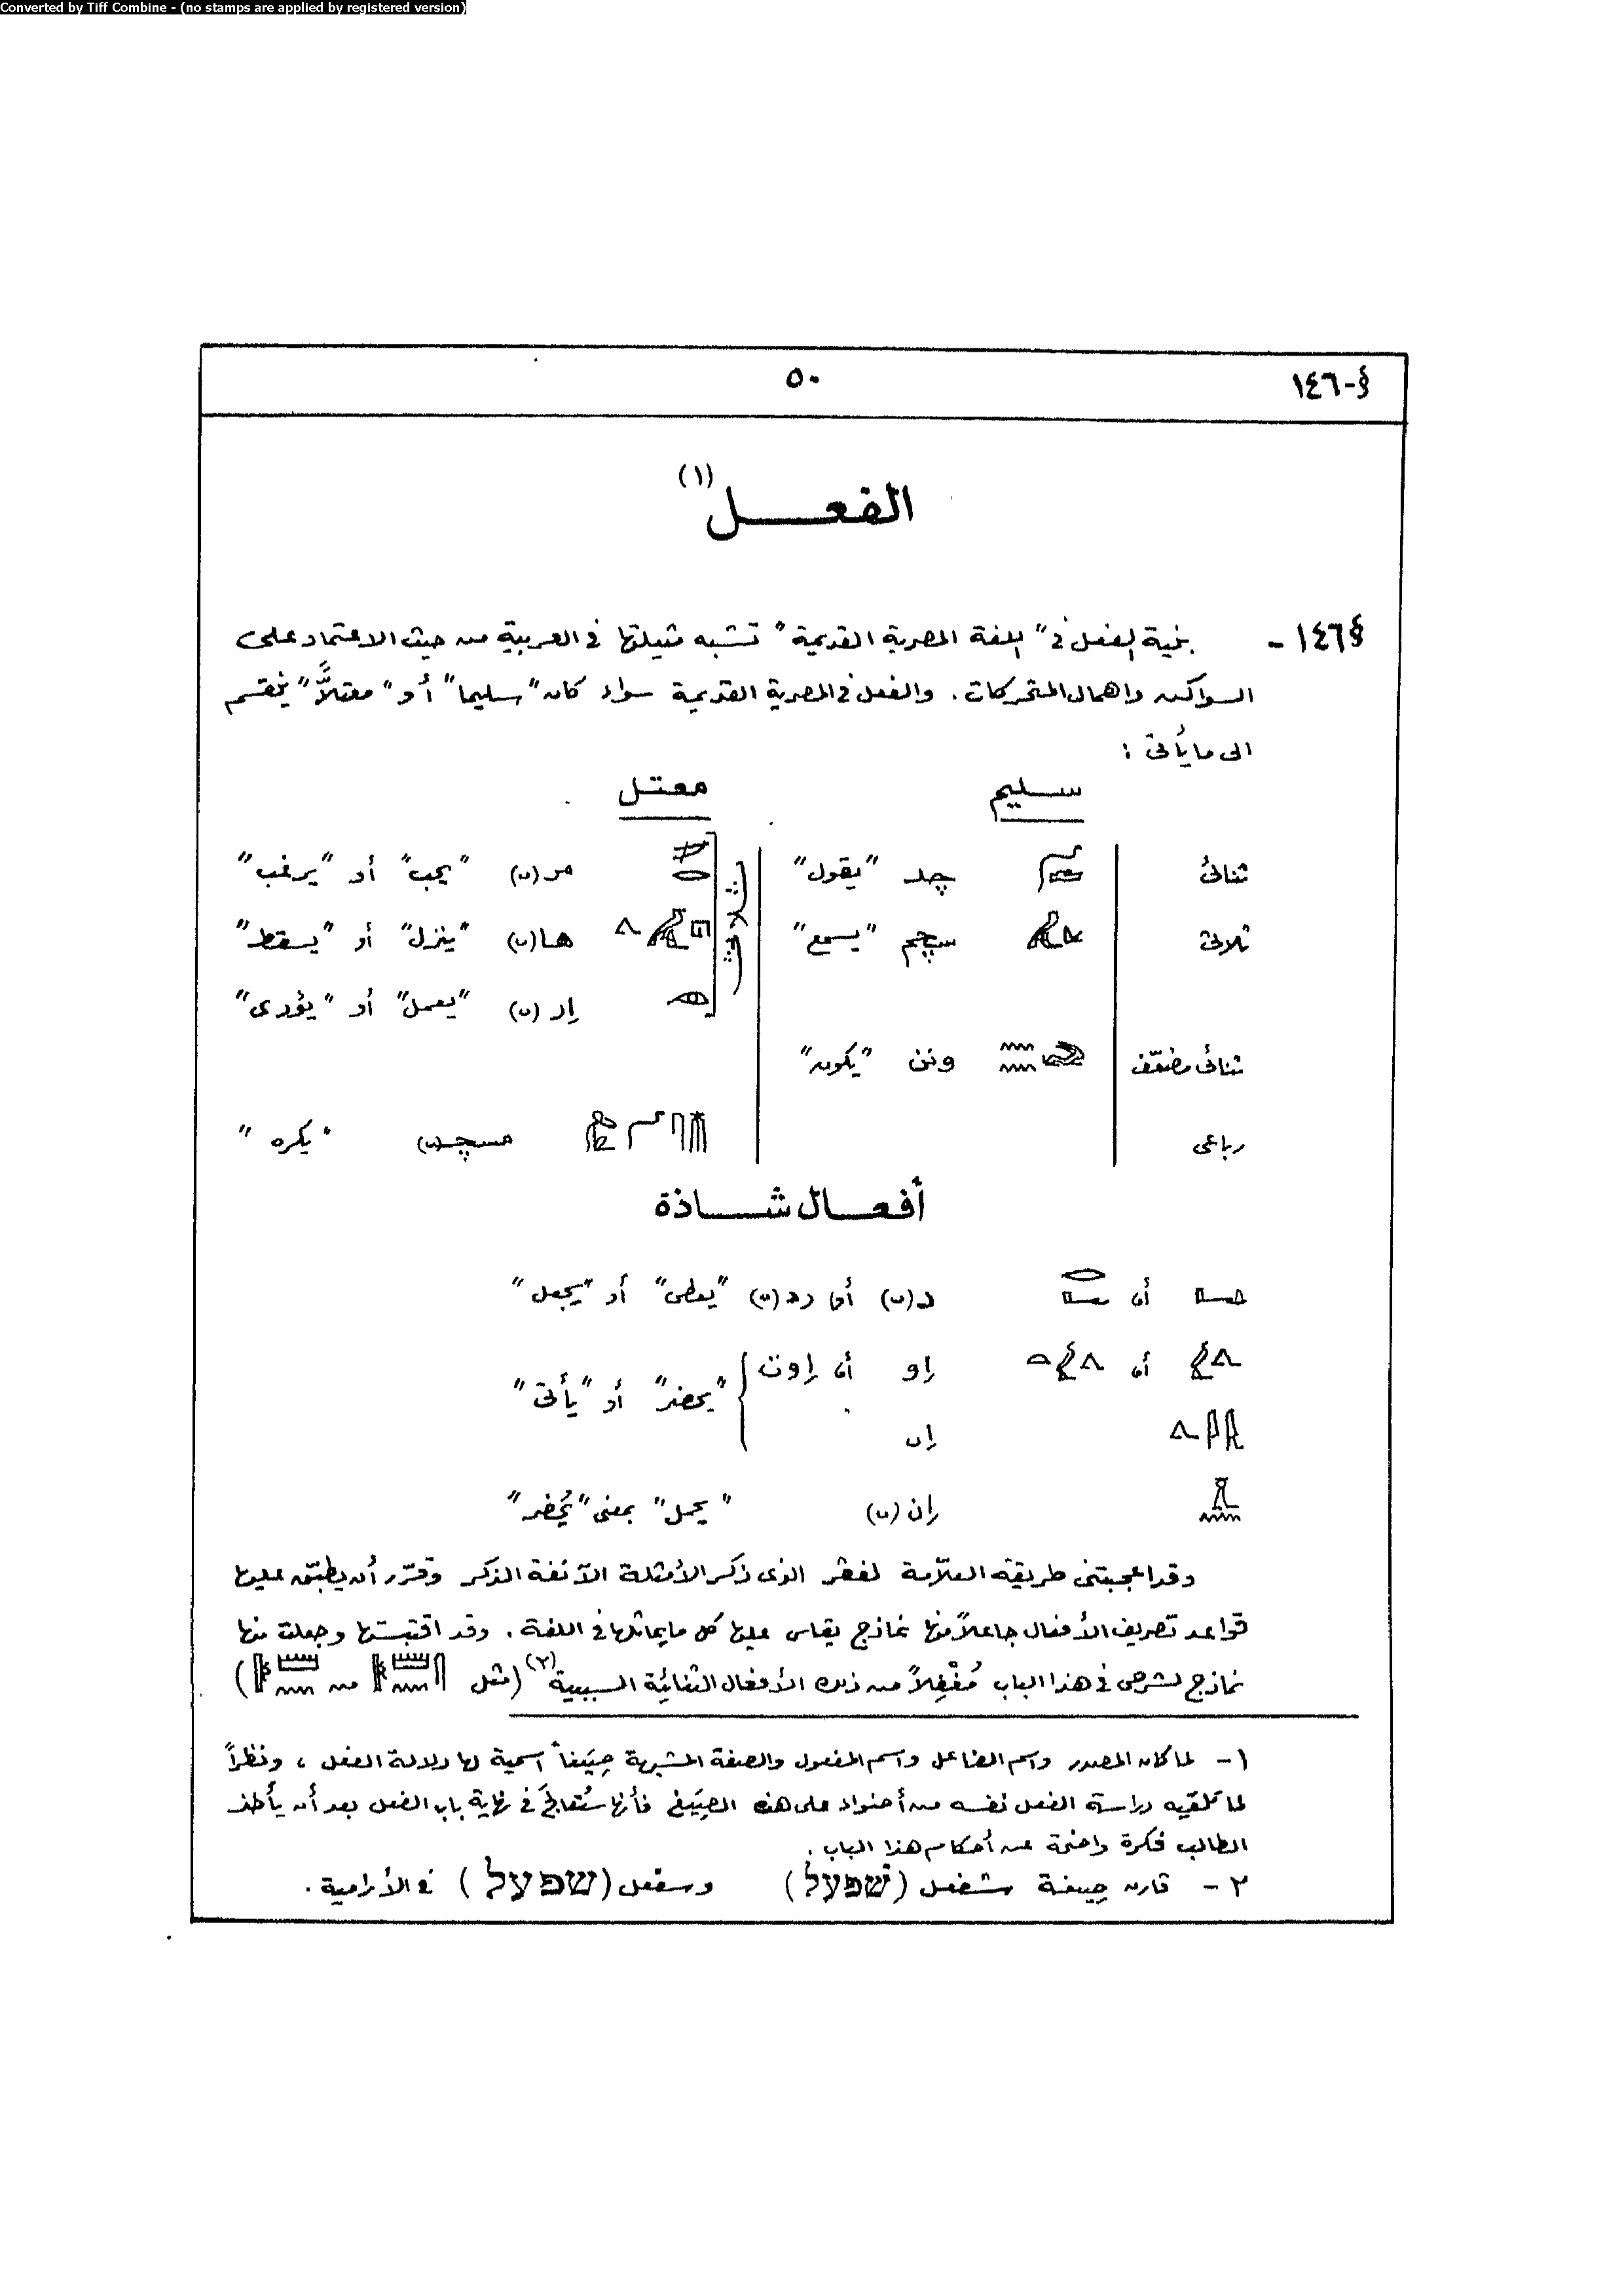 Converted by Tiff Combine - (no stamps are applied by registered version)
§-١٤٦
٥٠
الفعــل (١)
§١٤٦- بنية الفعل فى "اللغة المصرية القديمة" تشبه مثيلتها فى العربية من حيث الاعتماد على
السواكن واهمال المتحركات. والفعل فى المصرية القديمة سواء كان "سليما" أو "معتلاًّ" ينقسم
الى ما يأتى :
سليم
معتل
ثنائى چد "يقول" مر (ى) "يحب" أو "يرغب"
ثلاثى سچم "يسمع" ثلاثى ها(ى) "ينزل" أو "يسقط"
إر (ى) "يعمل" أو "يؤدى"
ثنائى مضعّف ونن "يكون"
رباعى مسچـ(ى) "يكره"
أفعال شاذة
أى د(ى) أى رد(ى) "يعطى" أو "يجعل"
أى إو أى إوت "يحضر" أو "يأتى"
إى
إن (ى) "يحمل" بمعنى "يُحضر"
وقد اعجبتنى طريقة العلاّمة لفڤر الذى ذكر الأمثلة الآنفة الذكر وقرّر أن يطبّق عليها
قواعد تصريف الأفعال جاعلاً منها نماذج يقاس عليها كل ما يماثلها فى اللغة. وقد اقتبستها وجعلت منها
نماذج لشرحى فى هذا الباب مُغْفِلاً من ذلك الأفعال الثنائية السببية (٢) (مثل من )
١- لما كان المصدر واسم الفاعل واسم المفعول والصفة المشبهة صِيَغاً اسمية لها دلالة الفعل ، ونظراً
لما تلقيه دراسة الفعل نفسه من أضواء على هذه الصِيَغ فأنها ستُعالَج فى نهاية باب الفعل بعد أن يأخذ
الطالب فكرة واضحة عن أحكام هذا الباب.
٢- قارن صيغة شفعل (שׁפעל) وسفعل (שפעל) فى الأرامية.